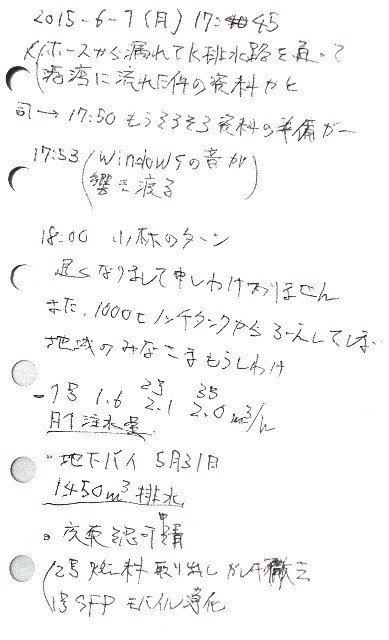 2015-6-1(月) 17:45
K(ホースから漏れてK排水路を通って
港湾に流れた件の資料かと
司→ 17:50 もうそろそろ資料の準備が一
17:53 (Windowsの音が
響き渡る)
18:00 小林のターン
遅くなりまして申しわけありません
また、1000tノッチタンクから ろうえいしてしま
地域のみなさまもうしわけ
-1号 1.6 2号 2.1 3号 2.0 m³/h
注水量
・地下バイ 5月31日
1450m³ 排水
・変更認可申請
(2号燃料取り出し ガレキ撤去
1号SFP モバイル浄化